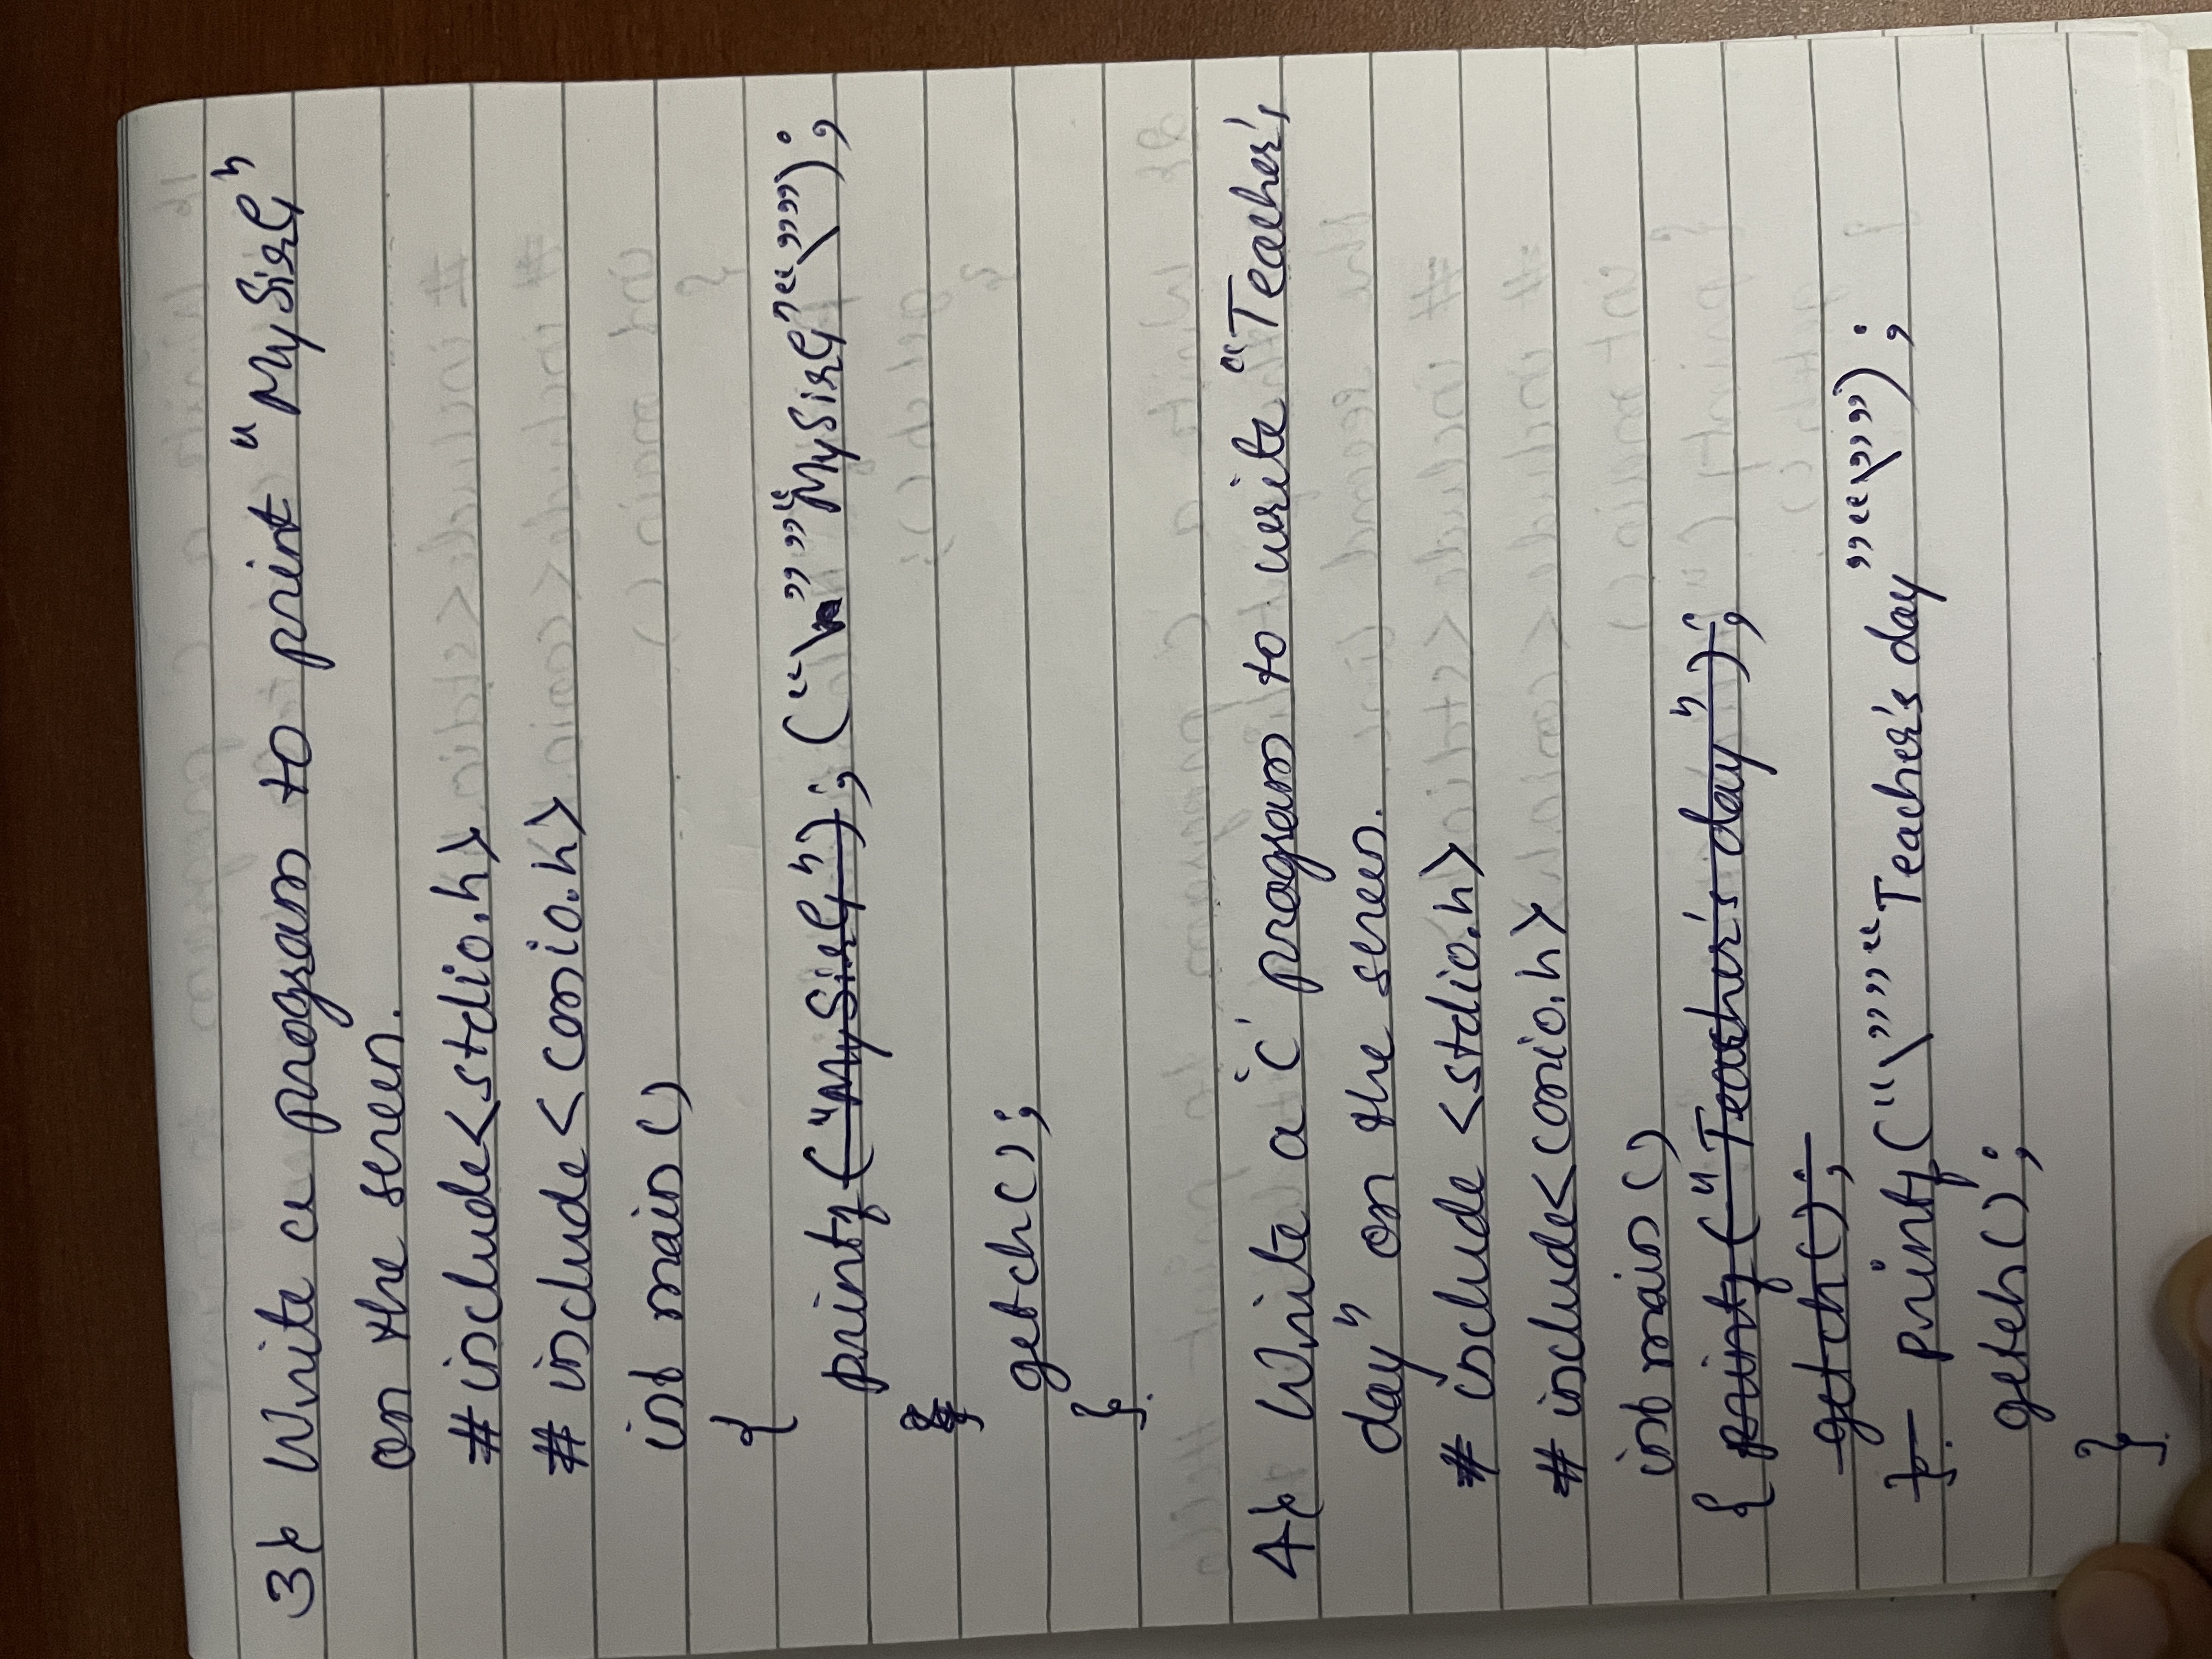 3} Write a program to print "MySirG"
on the screen.
#include<stdio.h>
# include<conio.h>
int main ()
{
printf ("MySirG"); ("\""""MySirG""\"");
getch();
}.
4} Write a 'C' program to write "Teacher's
day" on the screen.
# include <stdio.h>
# include<conio.h>
int main ()
{ printf ("Teacher's day");
getch();
}. printf("\"" "Teacher's day" "\"");
getch();
}